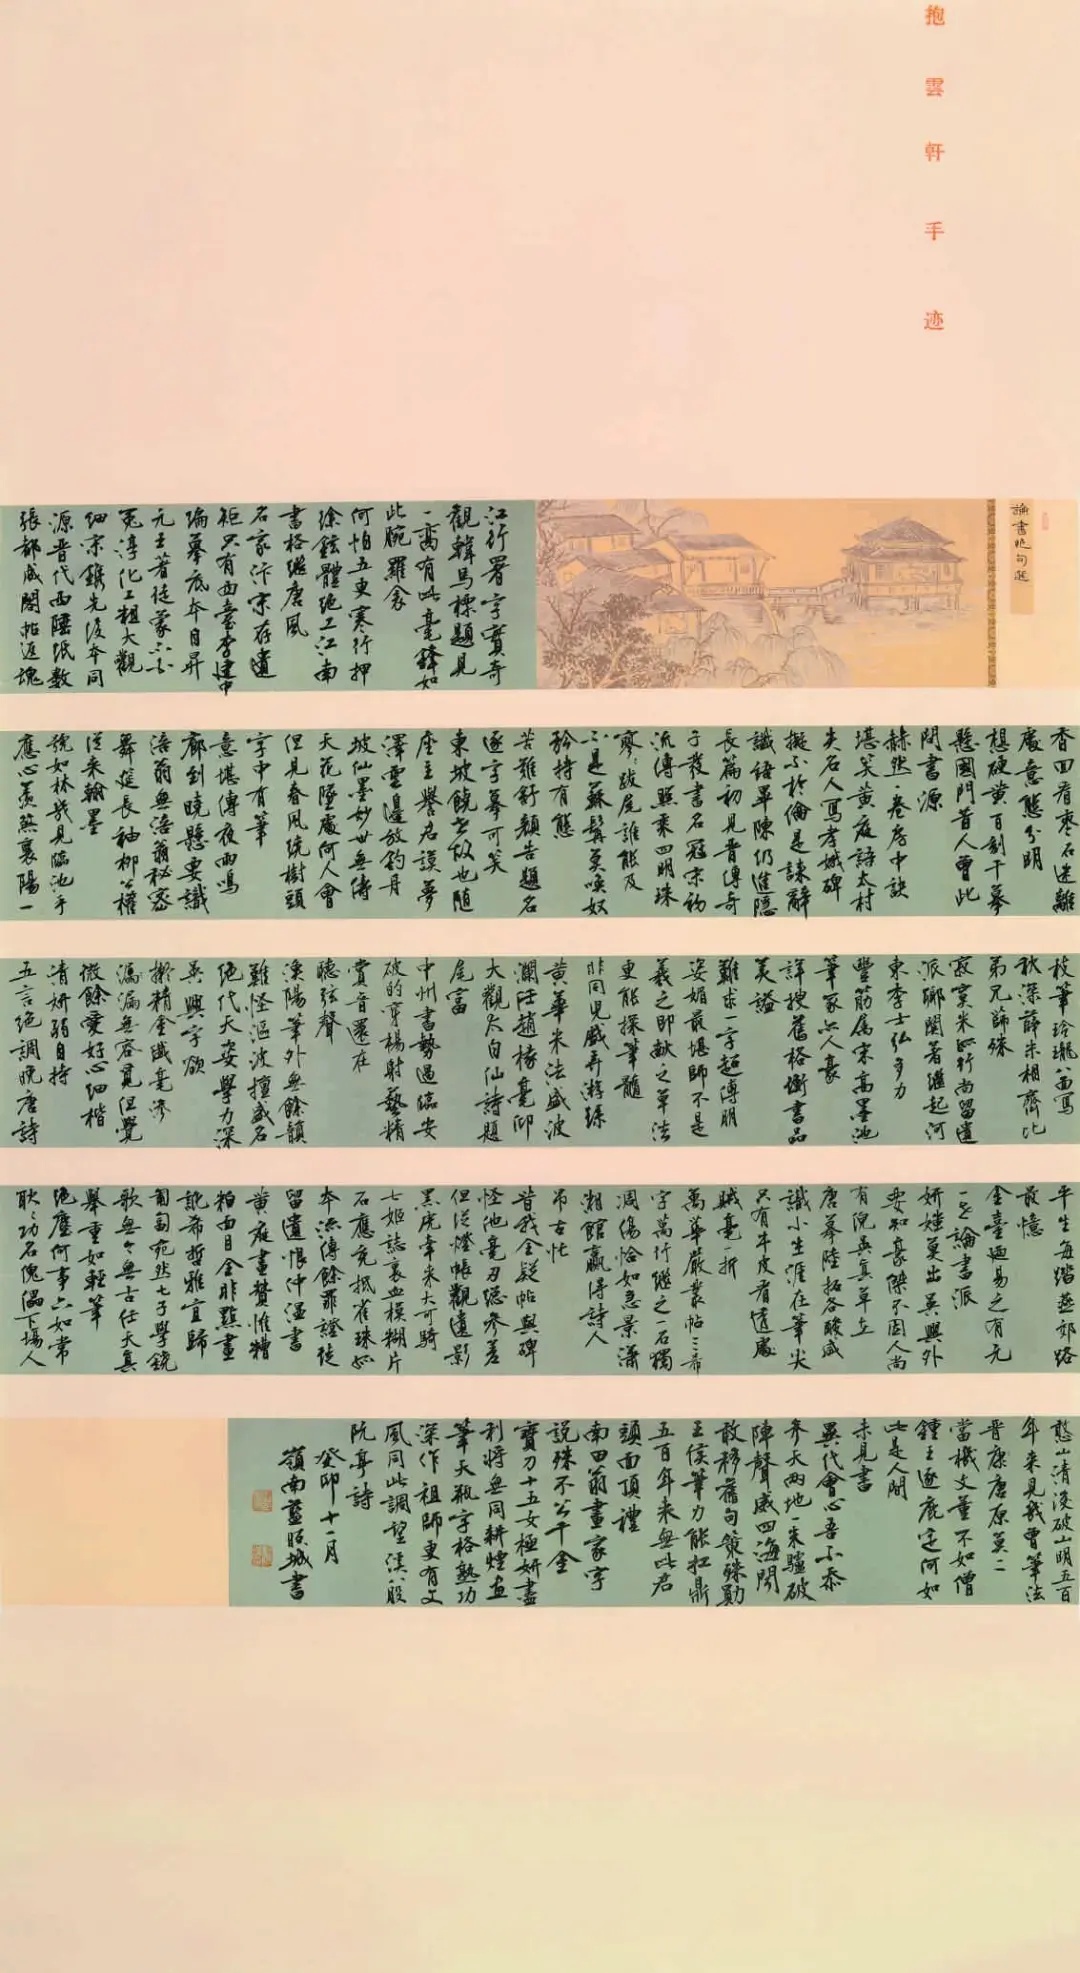 抱雲軒手迹
論書絶句選
江行署字寶奇
觀韓馬標題見
一斋有此毫鋒如
此腕羅衾
何怕五更寒行押
徐鉉體絶工江南
書格繼唐風
名家汴宋存遺
矩只有西臺李建中
編摹底本自昇
元王著徒蒙不白
冤淳化工粗大觀
細宗鐫先後本同
源晉代西陲紙數
張都成閣帖返魂
香回看棗石迷離
處意態分明
想硬黄百刻千摹
懸國門昔人曾此
問書源
赫然一卷房中訣
堪笑黄庭語太村
夫石人寫孝娥碑
擬不於倫是諛辭
讖語單陳仍進隱
長篇初見晉傳奇
子發書名冠宋初
流傳照乘四明珠
寥寥跋尾誰能及
不是蘇髯莫喚奴
矜持有態
苦難舒顏告題名
逐字摹可笑
東坡饒世故也隨
座主譽君謨夢
澤雲邊放釣舟
坡仙墨妙世無儔
天花墜處何人會
但見春風繞樹頭
字中有筆
意堪傳夜雨鳴
廊到曉懸要識
涪翁無涪翁秘密
舞筵長袖柳公權
從來翰墨
號如林幾見臨池手
應心羡煞襄陽一
枝筆玲瓏八面寫
秋深薛米相齊比
弟兄篩殊
寂寞米延行尚留遺
派鄰闤著繼起河
東李士弘多力
豐筋属宋高墨池
筆冢只人豪
詳搜舊格衡書品
美謚
難求一字超傳朋
姿媚最堪師不是
羲之即獻之草法
更能探筆髓
非同兒戲弄游絲
黄華米法盛波
瀾任趙椽毫仰
大觀太白仙詩題
尾富
中州書勢過臨安
破的穿楊射藝精
賞音還在
聽弦聲
漁陽筆外無餘韻
難怪漚波擅盛名
絶代天姿學力深
吳興字欲
擬精金纖毫滲
漏無容覓但覺
微餘愛好心細楷
清妍弱自持
五言絶調晚唐詩
平生每踏燕郊路
最憶
金臺迺易之有元
一世論書派
妍媸莫出吳興外
要知豪傑不因人尚
有倪吳真草在
唐摹陸拓各酸咸
識小生涯在筆尖
只有牛皮看透處
賊毫一折
萬華嚴叢帖三希
字萬行繼之一石獨
凋傷恰如急景瀟
湘館贏得詩人
吊古忙
昔我全疑帖與碑
怪他毫刃總參差
但從燈帳觀遺影
黑虎牽來大可騎
七姬誌裏血模糊片
石應充抵雀珠此
本流傳餘罪證徒
留遺恨仲溫書
黄庭畫贊惟糟
粕面目全非點畫
訛希哲雅宜歸
匍匐宛然七子學鐃
歌無今無古任天真
舉重如輕筆
絶塵何事六如常
耿耿功名傀儡下場人
憨山清後破山明五百
年來見幾曾筆法
晉唐唐原莫二
當機文董不如僧
鍾王逐鹿定何如
此是人間
未見書
異代會心吾不忝
參天兩地一朱驢破
陣聲威四海聞
敢移舊句策殊勛
王侯筆力能扛鼎
五百年來無此君
頭面頂禮
南田翁畫家字
說殊不公千金
寶刀十五女極妍盡
利將無同耕煙畫
筆天瓶字格熟功
深作祖師更有文
風同此調望溪八股
阮亭詩
癸卯十一月
嶺南藍照城書